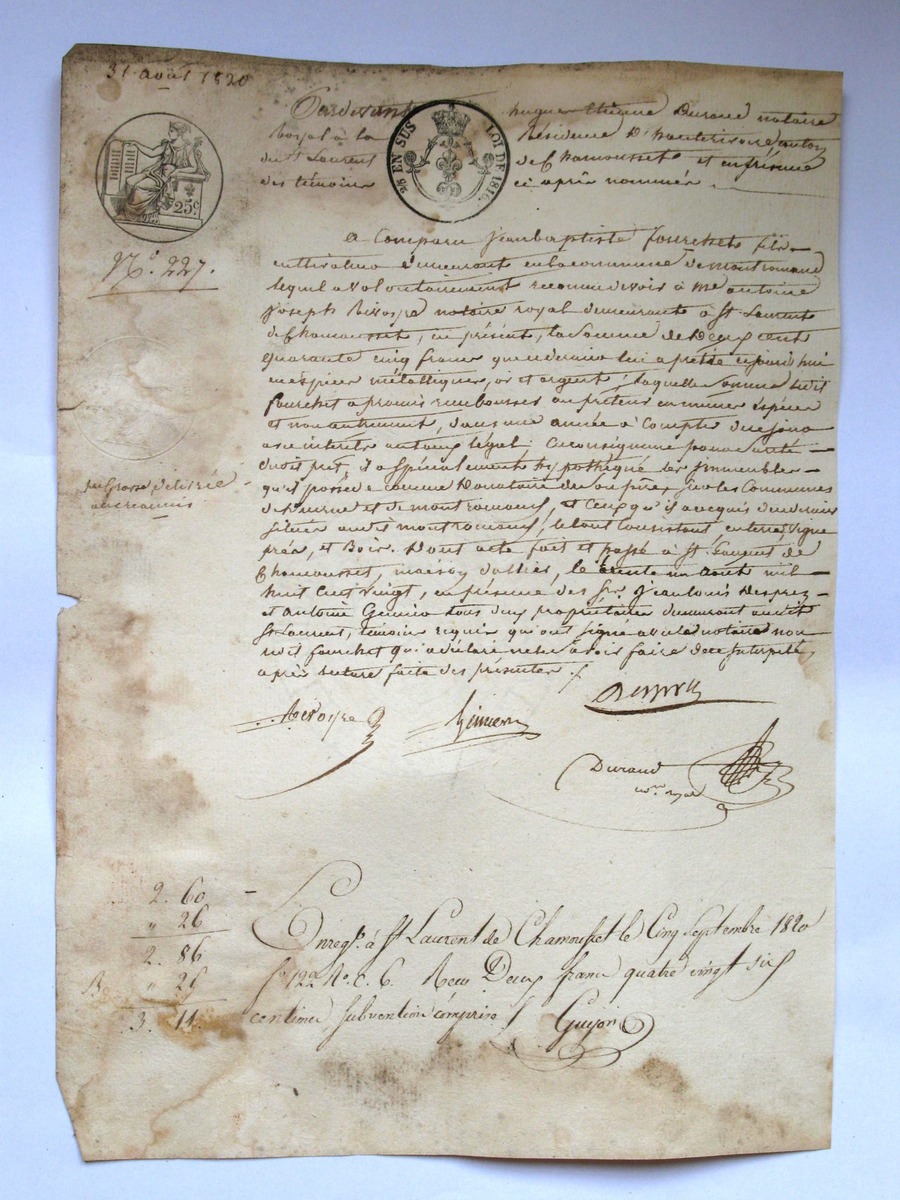 31 août 1820
Pardevant hugues Etienne Durand notaire
Royal à la Résidence D'hauterivoire canton
de St Laurent de Chamousset et en présence
des témoins ci après nommés.
25 EN SUS LOI DE 1816.
25c
N.° 227.
a Comparu Jean baptiste fourchet fils
cultivateur demeurant en la commune de montromand
lequel a volontairement reconnu devoir à Me antoine
joseph Rivoyre notaire royal demeurant à St Laurent
de Chamousset, ici présent, la Somme de Deux cent
quarante cinq francs que ce dernier lui a prêté cejourd'hui
en espèces métalliques, or et argent; laquelle Somme ledit
fourchet a promis rembourser au prêteur en mêmes espèces
et non autrement, dans une année à Compter de ce jour
avec intérêts au taux légal;
droit prêt, il a Spécialement hypothéqué les immeubles
qu'il possède comme Donataire de son père, sur les Communes
de et de montromand, et Ceux qu'il a acquis
situés audit montromand, le tout consistant en terre, Vigne
prés, et Bois. Dont acte fait et passé à St Laurent de
Chamousset, maison d'allier, le trente un Août mil
huit Cent Vingt, en présence des Srs Jean louis Desprez
et Antoine Gimier tous deux propriétaires demeurant audit
St Laurent, témoins requis qui ont signé avec le notaire non
ledit fourchet qui a déclaré ne le Savoir faire de ce Interpellé
après lecture faite des présentes ./.
la Grosse délivrée
au créancier
Rivoyre Gimier Desprez
Durand
nre royal
2. 60
" 26
2. 86
" 25
3. 11.
Enregt. à St Laurent de Chamousset le Cinq Septembre 1820
fo 122 Ro. C. 6. Reçu Deux francs quatre vingt six
centimes subvention comprise ./. Guyon